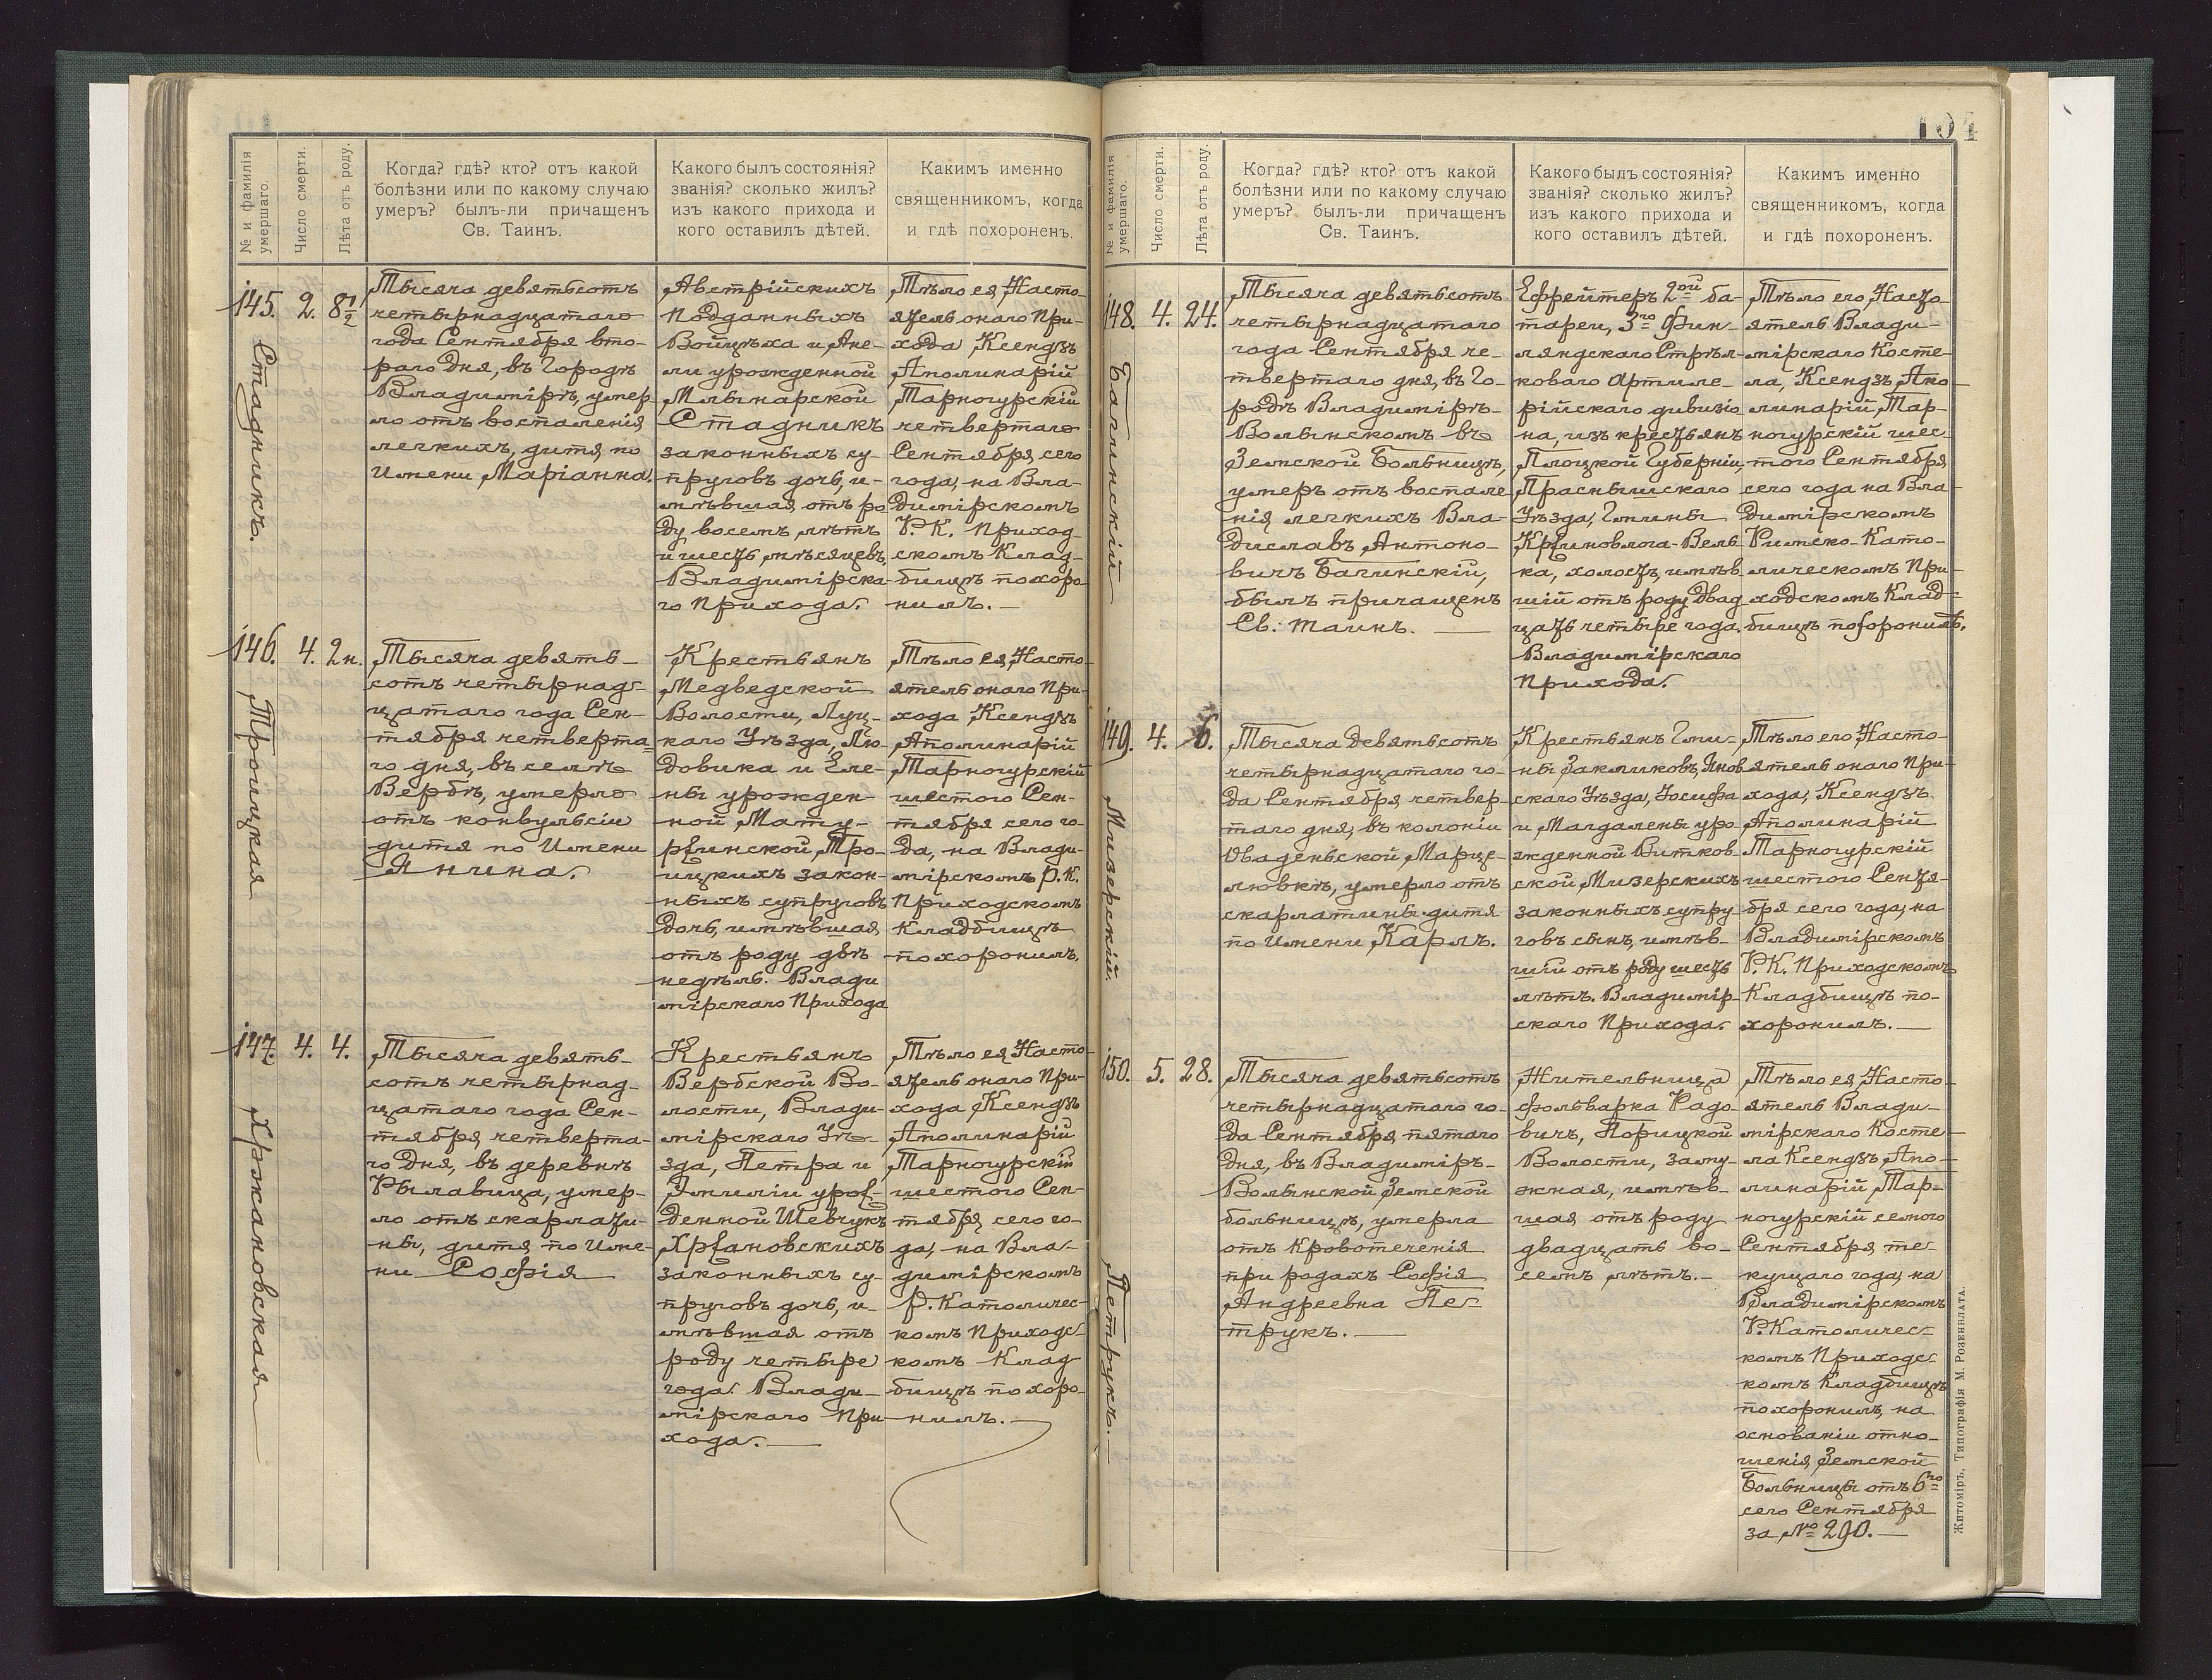 № и фамилія умершаго.
Число смерти.
Лѣта отъ роду.
Когда? гдѣ? кто? отъ какой
болѣзни или по какому случаю
умеръ? былъ-ли причащенъ
Св. Таинъ.
Какого былъ состоянія?
званія? сколько жилъ?
изъ какого прихода и
кого оставилъ дѣтей.
Какимъ именно
священникомъ, когда
и гдѣ похороненъ.
145. Стадникъ.
2.
8½
Тысяча девятьсотъ
четырнадцатаго
года Сентября вто-
раго дня, въ Городѣ
Владимірѣ, умер-
ло отъ воспаленія
легкихъ, дитя по
имени Маріанна.
Австрійскихъ
подданныхъ
Войцѣха и Ане-
ли урожденной
Млынарской
Стадникъ
законныхъ су-
пруговъ дочь, и-
мѣвшая отъ ро
ду восемь лѣтъ
и шесть мѣсяцевъ,
Владимірска-
го прихода.
Тѣло ея, Насто-
ятель онаго При-
хода Ксендзъ
Аполинарій
Тарногурскій
четвертаго
Сентября сего
года, на Вла-
димірскомъ
Р. К. Приход-
скомъ Клад-
бищѣ похоро-
нилъ. —
146. Троицкая
4.
2 н.
Тысяча девять-
сотъ четырнад-
цатаго года Сен-
тября четверта-
го дня, въ селѣ
Вербѣ, умерло
отъ конвульсіи
дитя по имени
Янина.
Крестьянъ
Медведской
Волости, Луц-
каго Уѣзда, Лю-
довика и Еле-
ны урожден-
ной Мату-
ржинской, Тро-
ицкихъ закон-
ныхъ супруговъ
дочь, имѣвшая
отъ роду двѣ
недѣль. Влади
мірскаго Прихода
Тѣло ея, Насто-
ятель онаго При-
хода Ксендзъ
Аполинарій
Тарногурскій
шестого Сен-
тября сего го-
да, на Влади-
мірскомъ Р. К.
Приходскомъ
Кладбищѣ
похоронилъ.
147. Хржановская
4.
4.
Тысяча девять-
сотъ четырнад-
цатаго года Сен-
тября четверта-
го дня, въ деревнѣ
Рылавица, умер-
ло отъ скарлати-
ны, дитя по име-
ни София
Крестьянъ
Вербской Во-
лости, Влади-
мірскаго Уѣ-
зда, Петра и
Эмиліи урож-
денной Шевчукъ
Хржановскихъ
законныхъ су-
пруговъ дочь, и-
мѣвшая отъ
роду четыре
года. Влади-
мірскаго При-
хода. —
Тѣло ея, Насто-
ятель онаго При-
хода Ксендзъ
Аполинарій
Тарногурскій
шестого Сен-
тября сего го-
да, на Вла-
димірскомъ
Р. Католичес-
комъ Приходс-
комъ Клад-
бищѣ похоро-
нилъ. —
104
№ и фамилія умершаго.
Число смерти.
Лѣта отъ роду.
Когда? гдѣ? кто? отъ какой
болѣзни или по какому случаю
умеръ? былъ-ли причащенъ
Св. Таинъ.
Какого былъ состоянія?
званія? сколько жилъ?
изъ какого прихода и
кого оставилъ дѣтей.
Какимъ именно
священникомъ, когда
и гдѣ похороненъ.
148. Багинскій
4.
24.
Тысяча девятьсотъ
четырнадцатаго
года Сентября че-
твертаго дня, въ Го-
родѣ Владимірѣ-
Волынскомъ въ
Земской Больницѣ,
умеръ отъ воспале
нія легкихъ Вла-
диславъ Антоно-
вичъ Багинскій,
былъ причащенъ
Св. таинъ. —
Ефрейтеръ 2ой ба-
тареи, 3го Фин-
ляндскаго Стрѣл-
коваго Артиле-
рійскаго дивизіо
на, изъ крестьянъ
Плоцкой Губерніи,
Праснышскаго
Уѣзда, Гмины
Кржиновлога-Вель
ка, холостъ, имѣв
шій отъ роду двад
цать четыре года.
Владимірскаго
прихода.
Тѣло его, Насто-
ятель Влади-
мірскаго Косте-
ла, Ксендзъ Апо-
линарій Тар-
ногурскій шес-
того Сентября
сего года на Вла-
димірскомъ
Римско-Като-
лическомъ При-
ходскомъ Клад-
бищѣ похоронилъ.
149. Мизерскій.
4.
6.
Тысяча девятьсотъ
четырнадцатаго го-
да Сентября четвер-
таго дня, въ колоніи
Оваденьской, Марце-
лювкѣ, умерло отъ
скарлатины дитя
по имени Карлъ.
Крестьянъ Гми-
ны Закликовъ, Янов
скаго Уѣзда, Іосифа
и Магдалены уро
жденной Витков
ской, Мизерскихъ
законныхъ супру
говъ сынъ, имѣв-
шій отъ роду шесть
лѣтъ. Владимір-
скаго Прихода.
Тѣло его Насто-
ятель онаго При-
хода, Ксендзъ
Аполинарій
Тарногурскій
шестого Сентя-
бря сего года, на
Владимірскомъ
Р. К. Приходскомъ
Кладбищѣ по-
хоронилъ. —
150. Петрукъ. —
5.
28.
Тысяча девятьсотъ
четырнадцатаго го-
да Сентября пятаго
дня, въ Владимірѣ-
Волынской Земской
больницѣ, умерла
отъ кровотеченія
при родахъ Софія
Андреевна Пе-
трукъ. —
Жительница
фольварка Радо-
вичъ, Порицкой
Волости, заму-
жная, имѣв-
шая отъ роду
двадцать во-
семь лѣтъ. —
Тѣло ея, Насто-
ятель Влади-
мірскаго Косте-
ла Ксендзъ Апо-
линарій Тар-
ногурскій семого
Сентября те-
кущаго года, на
Владимірскомъ
Р. Католичес-
комъ Приходс-
комъ Кладбищѣ
похоронилъ, на
основаніи отно-
шенія Земской
Больницы отъ 6го
сего Сентября
за № 290. —
Житоміръ, Типографія М. Розенблата.